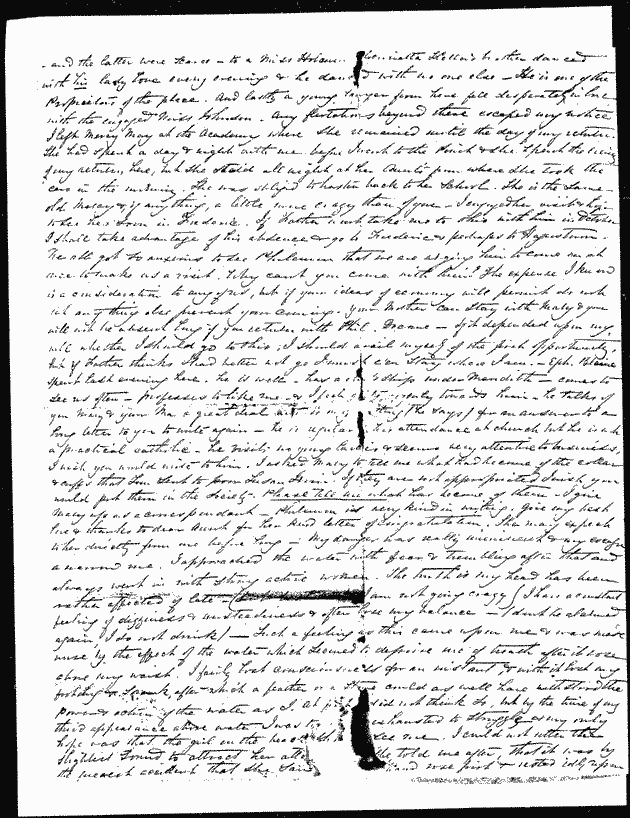 - and the latter were Fearce - to a Miss Holam. Henrietta Hellen's brother danced
with his lady love every evening & he danced with no one else - He is one of the
Proprietors of the place. And lastly a young lawyer from here fell desperately in love
with the engaged Miss Johnston. Any flirtations beyond these escaped my notice
I left Mercy Mary at the Academy where she remained until the day of my return.
She had spent a day & night with me before I went to the Point & she spent the evening
of my return, here, but she staid all night at her Aunt's from where she took the
cars in the morning. She was obliged to hasten back to her School. She is the same
old Macay & if anything, a little more crazy than of yore - I enjoyed her visit & hope
to see her soon in Frederic. If Father will not take me to Ohio with him in October
I shall take advantage of his absence & go to Frederic & perhaps to Hagerstown.
We all got so anxious to see Philemon that we are urging him to come on at
once to make us a visit. Why cant you come with him? The expense I know
is a consideration to any of us, but if your ideas of economy will permit do not
let any thing else prevent your coming. Your Mother can stay with Mary & you
will not be absent long if you return with Phil. Do come - If it depended upon my
will whether I should go to Ohio, I should avail myself of the first opportunity,
but if Father thinks I had better not go I must e'en stay where I am - Eph. Blaine
spent last evening here. He is well - has a Ship under Meredith - comes to
see us often - professes to like me - & I feel towards him - he talks of
you Mary & your Ma a great deal (he says) for an answer to a
long letter to you to write again - he is regular in his attendance at church but he is not
a practical catholic - he visits no young ladies & seems very attentive to business,
I wish you would write to him. I asked Mary to tell me what had become of the collar
& cuffs that I sent to from Susan. If they are not appropriated I wish you
would put them in the Society - Please tell me what has become of them - I give
Mary up as a correspondent - Philemon is very kind in writing, give my best
love & thanks to dear Aunt for her kind letter of congratulation. She may expect
to hear directly from me before long - My danger was really imminent & my escape
a narrow one. I approached the water with fear & trembling after that and
always went in with strong active women. The truth is my head has been
rather affected of late - I am not going crazy (I have a constant
feeling of dizziness & unsteadiness & often lose my balance - (dont be alarmed
again, I do not drink) - Such a feeling as this came upon me & was made
worse by the effect of the water which seemed to deprive me of breath after it rose
above my waist. I fairly lost consciousness for an instant, & with it lost my
footing & I sunk, after which a feather or a straw could as well have withstood the
power & action of the water as I. At first I did not think so, but by the time of my
third appearance above water I was too exhausted to struggle & my only
hope was that the girl on the beach should see me. I could not utter the
slightest sound to attract her attention. She told me after, that it was by
the merest accident that she saw and rose first & rested idly upon